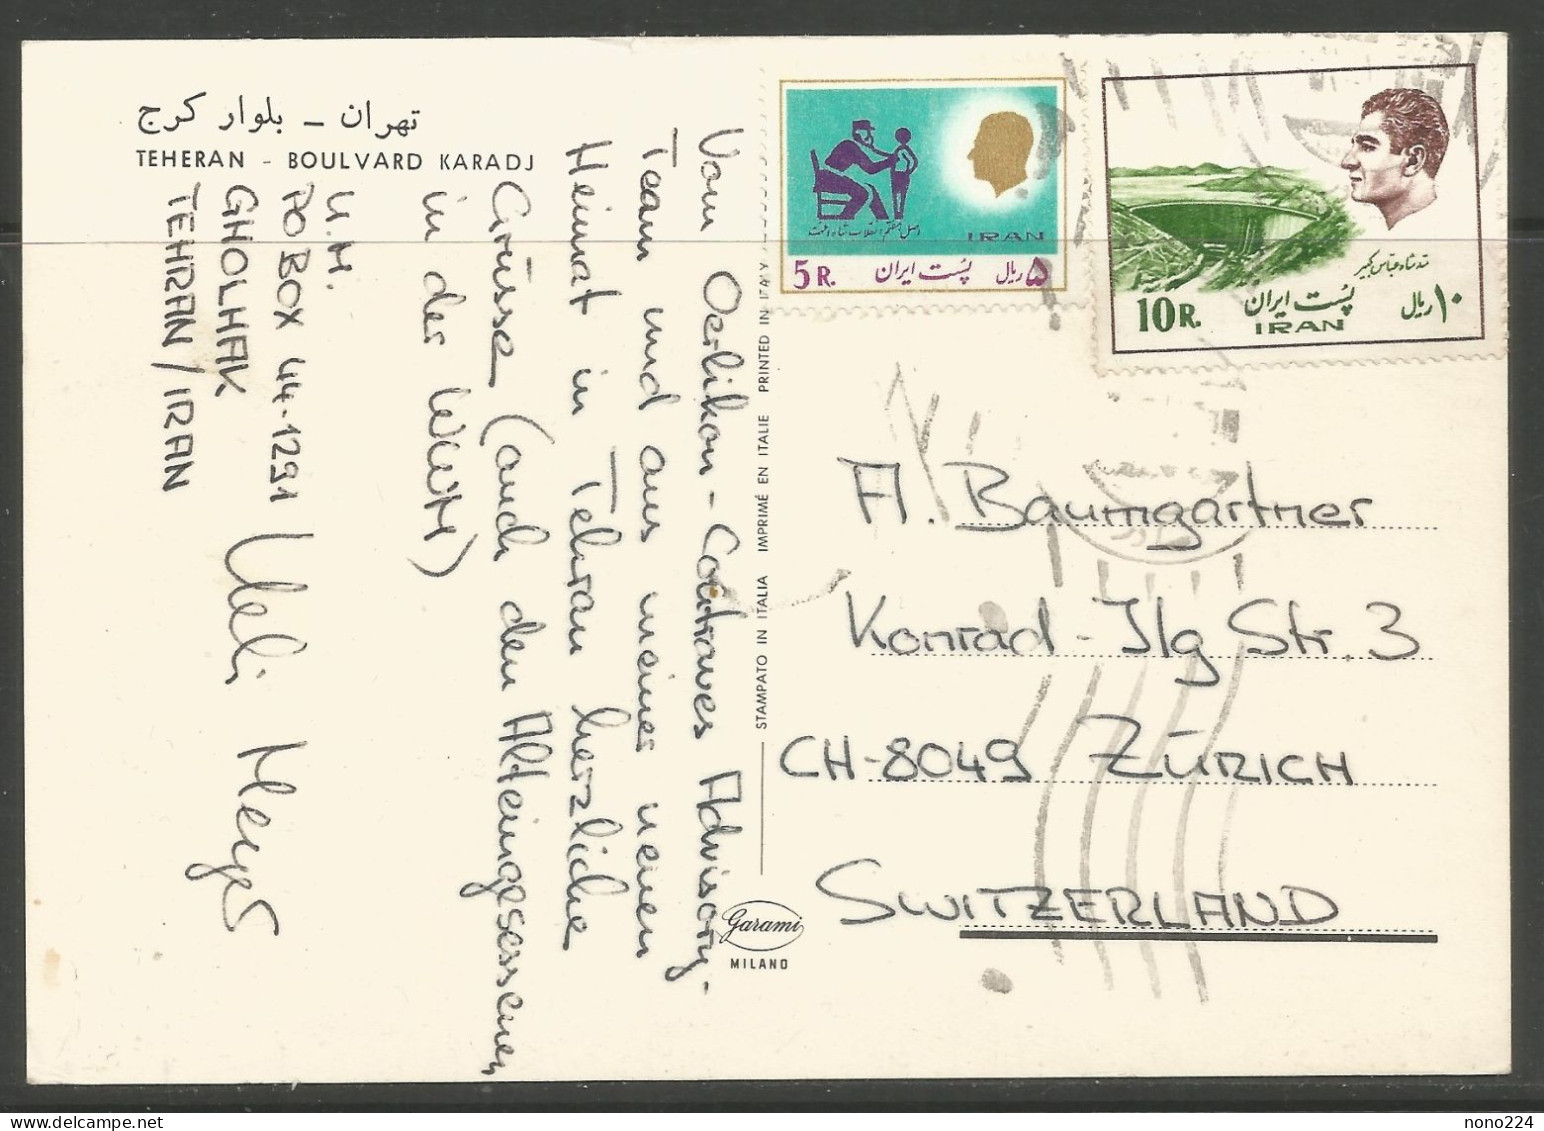 تهران ــ بلوار کرج
TEHERAN - BOULVARD KARADJ
Vom Oerlikon-Contraves Advisory-
Team und aus meiner neuen
Heimat in Tehran herzliche
Grüsse (auch den Alteingesessenen
in der WUM)
Ueli Meyer
U.M.
PO BOX 44-1291
GHOLHAK
TEHRAN / IRAN
STAMPATO IN ITALIA IMPRIMÉ EN ITALIE PRINTED IN ITALY
garami
MILANO
IRAN
5 R. پست ایران ۵ ریال
سد شاه عباس کبیر
10 R. پست ایران ۱۰ ریال
IRAN
A. Baumgartner
Konrad-Ilg Str. 3
CH-8049 ZÜRICH
SWITZERLAND
nono224